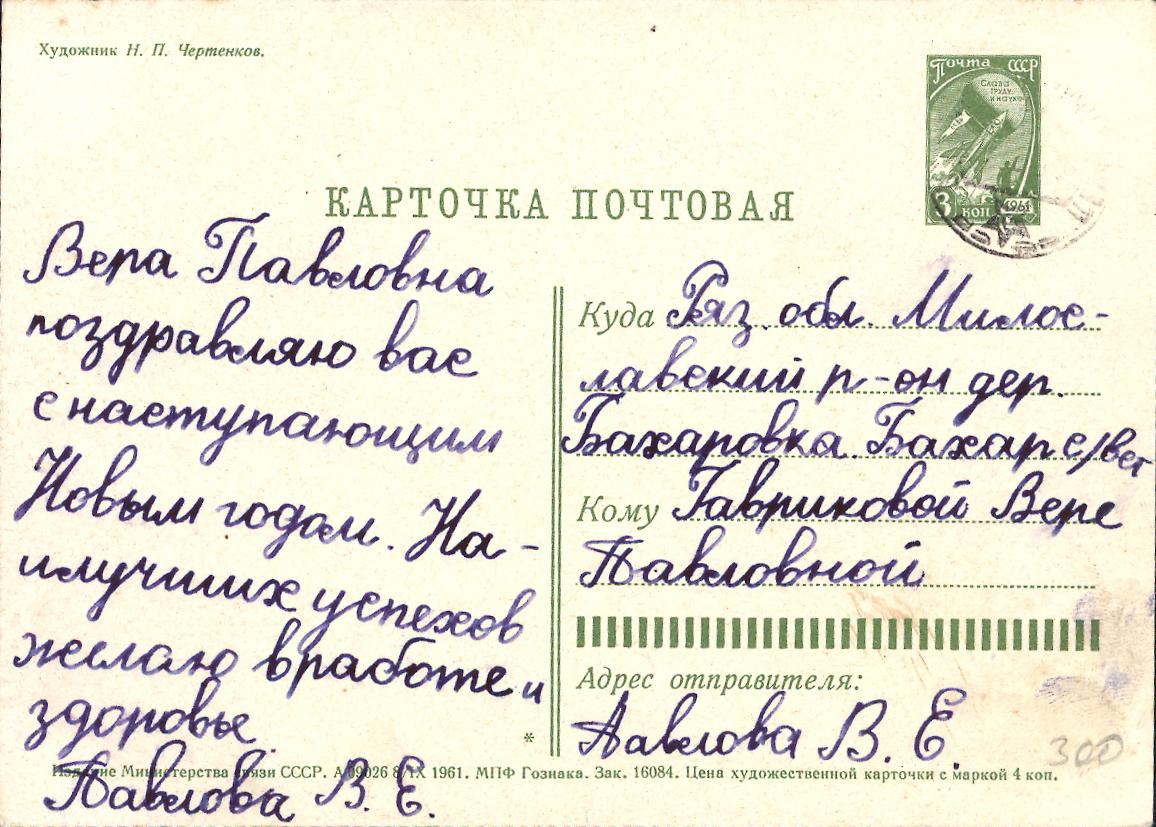 Художник Н. П. Чертенков.
Почта СССР
Слава
труду
и науке
3 коп 1961
КАРТОЧКА ПОЧТОВАЯ
Вера Павловна
поздравляю вас
с наступающим
Новым годом. На-
илучших успехов
желаю в работе и
здоровье.
Павлова В. Е.
Куда Ряз. обл. Милос-
лавский р-он дер.
Бахаровка Бахар с/вет
Кому Гавриковой Вере
Павловной
Адрес отправителя:
Павлова В. Е.
*
Издание Министерства связи СССР. А 09026 8/IX 1961. МПФ Гознака. Зак. 16084. Цена художественной карточки с маркой 4 коп.
300